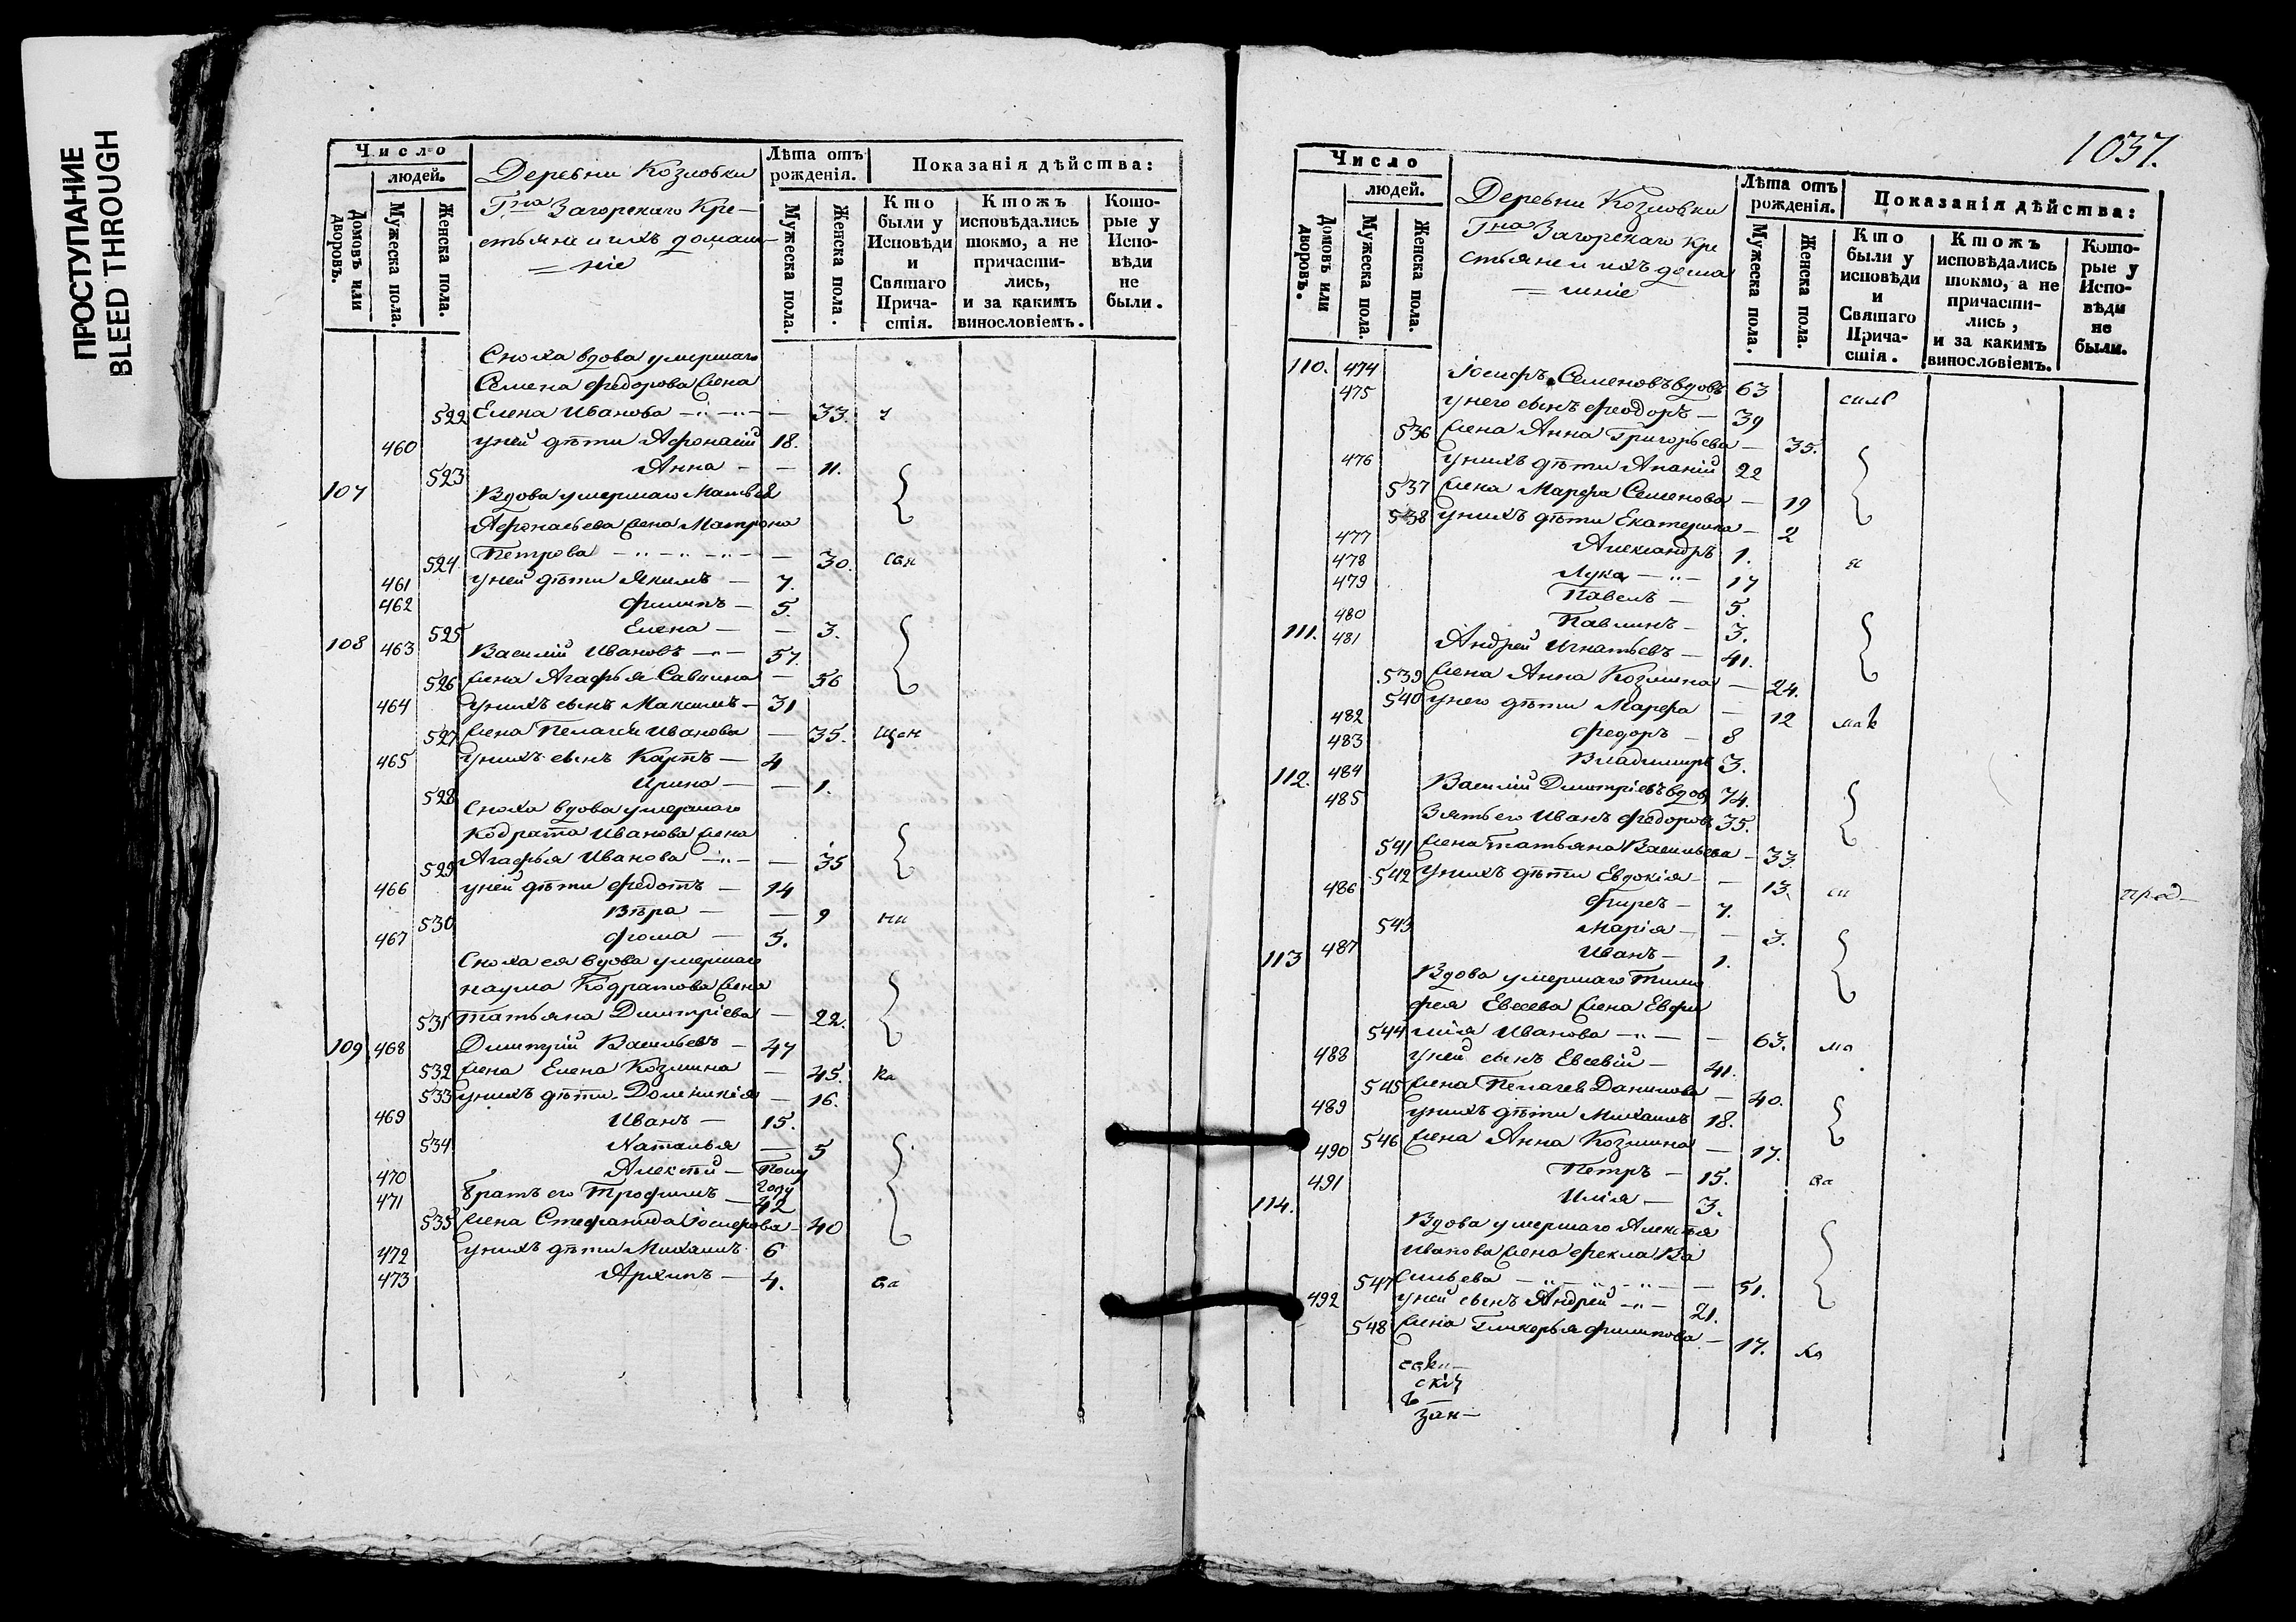 ПРОСТУПАНИЕ
BLEED THROUGH
Число
людей.
Домовъ или дворовъ.
Мужеска пола.
Женска пола.
Деревни Козловки
Гна Загорскаго Кре-
стьяне и ихъ домаш-
ніе
Лѣта отъ рожденія.
Мужеска пола.
Женска пола.
Показанія дѣйства:
Кто были у Исповѣди и Святаго Прича-стія.
Ктожъ исповѣдались токмо, а не причасти-лись, и за какимъ винословіемъ.
Кото-рые у Испо-вѣди не были.
Сноха вдова умершаго
Семена Федорова жена
522 Елена Иванова — 33.
460 у ней дѣти Афонасій 18.
523 Анна — 11.
107 Вдова умершаго Матвея
Афонасьева жена Матрона
524 Петрова — 30.
461 у ней дѣти Якимъ — 7.
462 Филипъ — 5.
525 Елена — 3.
108 463 Василій Ивановъ — 57.
526 жена Агафья Савина — 56
464 у нихъ сынъ Максимъ — 31
527 жена Пелагея Иванова — 35.
465 у нихъ сынъ Карпъ — 4
528 Ирина — 1.
Сноха вдова умершаго
Кодрата Иванова жена
529 Агафья Иванова — 35
466 у ней дѣти Федотъ — 14
530 Вѣра — 9
467 Фома — 5.
Сноха ея вдова умершаго
Наума Кодратова жена
531 Татьяна Дмитріева — 22.
109 468 Димитрій Васильевъ — 47
532 жена Елена Козмина — 45.
533 у нихъ дѣти Доминикія — 16.
469 Иванъ — 15.
534 Наталья — 5
470 Алексѣй — Полу году
471 братъ его Трофимъ — 42
535 жена Стефанида Іосифова — 40
472 у нихъ дѣти Михаилъ 6
473 Архипъ — 4.
1037.
Число
людей.
Домовъ или дворовъ.
Мужеска пола.
Женска пола.
Деревни Козловки
Гна Загорскаго Кре
стьяне и ихъ дома
шніе
Лѣта отъ рожденія.
Мужеска пола.
Женска пола.
Показанія дѣйства:
Кто были у исповѣди и Святаго Прича-стія.
Ктожъ исповѣдались токмо, а не причасти-лись, и за какимъ винословіемъ.
Кото-рые у Испо-вѣди не были.
110. 474 Іосифъ Семеновъ вдовъ 63
475 у него сынъ Феодоръ — 39
536 жена Анна Григорьева — 35.
476 у нихъ дѣти Ананій 22
537 жена Марфа Семенова — 19
538 у нихъ дѣти Екатерина — 2
477 Александръ 1.
478 Лука — 17
479 Павелъ — 5.
480 Павлинъ — 3.
111. 481 Андрей Игнатьевъ — 41.
539 жена Анна Козмина — 24.
540 у него дѣти Марфа — 12
482 Федоръ — 8
483 Владимиръ 3.
112. 484 Василій Димитріевъ вдовъ 74.
485 Зять его Иванъ Федоровъ 35.
541 жена Татьяна Васильева — 33
542 у нихъ дѣти Евдокія — 13.
486 Фирсъ — 7.
543 Марія — 3.
487 Иванъ — 1.
113 Вдова умершаго Тимо
фея Евсеева жена Евфи
544 мія Иванова — 63.
488 у ней сынъ Евсевій — 41.
545 жена Пелагея Данилова — 40.
489 у нихъ дѣти Михаилъ 18.
546 жена Анна Козмина — 17.
490 Петръ — 15.
491 Илія — 3.
114. Вдова умершаго Алексѣя
Иванова жена Фекла Ва
547 сильева — 51.
492 у ней сынъ Андрей — 21.
548 жена Гликерья Филипова — 17.